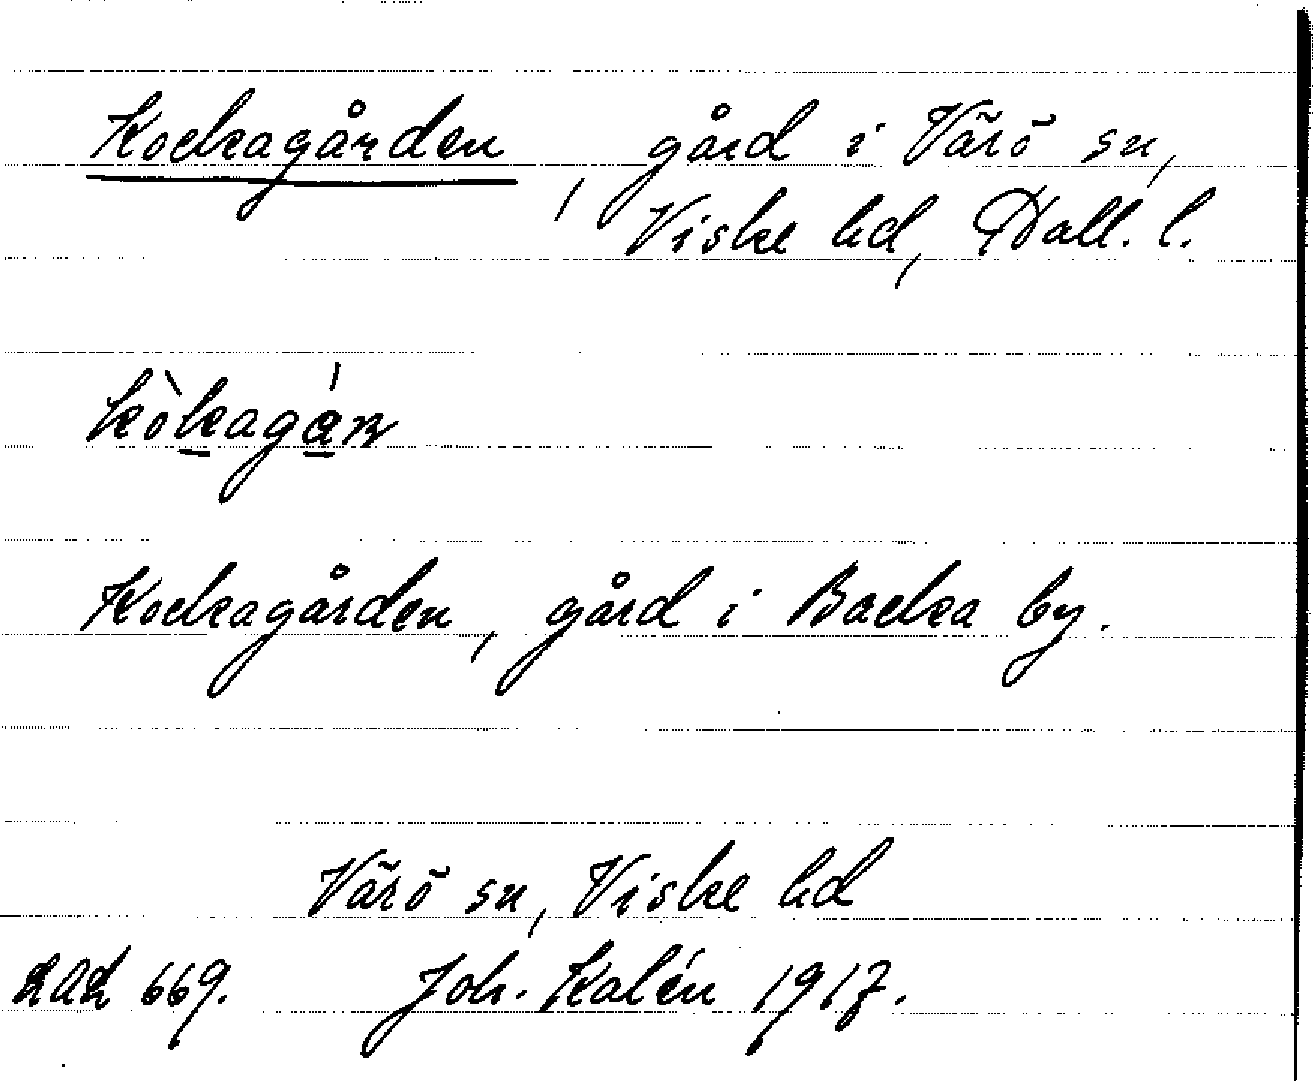 Kockagården, gård i Värö sn,
Viske hd, Hall. l.
kòkagán
Kockagården, gård i Backa by.
Värö sn, Viske hd
LAL 669. Joh. Kalén 1917.